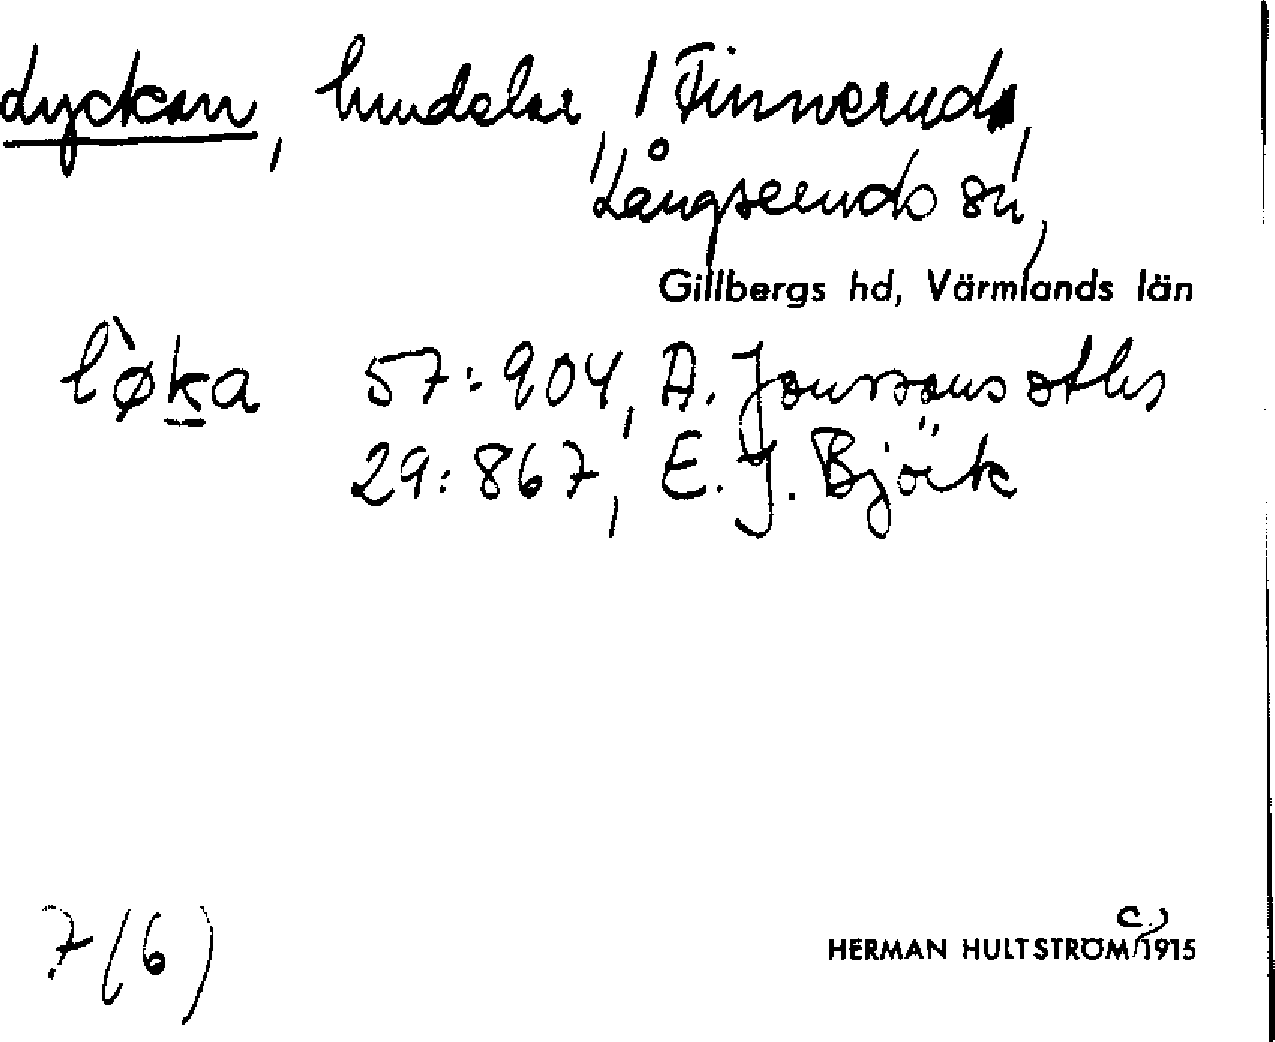 Lyckan, hmdelar, / Finnerud,
Långseruds sn,
Gillbergs hd, Värmlands län
l`øka 57:904, A. Jonssons stlus
29:867, E. J. Björk
7 (6)
HERMAN HULTSTRÖM c. 1915